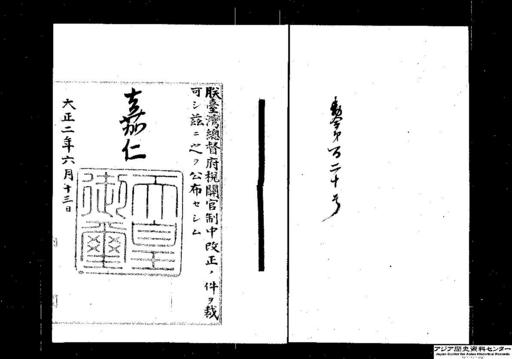 勅令第百二十号
朕臺灣總督府税關官制中改正ノ件ヲ裁
可シ茲ニ之ヲ公布セシム
嘉仁
天皇
御璽
大正二年六月十三日
アジア歴史資料センター
Japan Center for Asian Historical Records